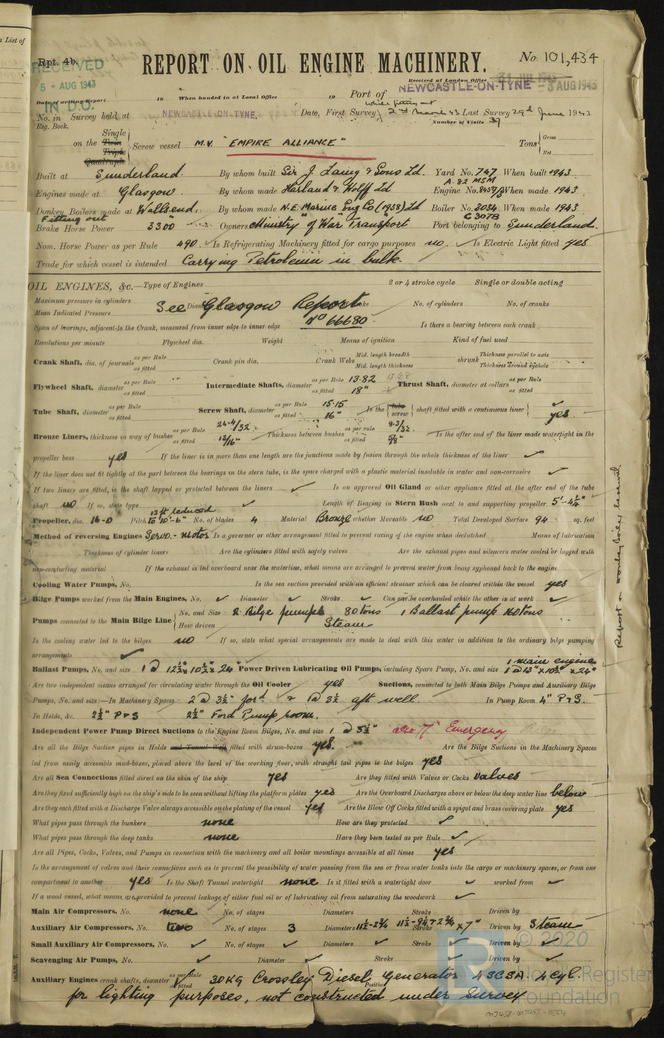 a List of
Rpt. 4b.
RECEIVED
5 - AUG 1943
IN D.O.
REPORT ON OIL ENGINE MACHINERY.
No. 101,434
Received at London Office
3 AUG 1943
Date of writing Report 19 When handed in at Local Office 19 Port of NEWCASTLE-ON-TYNE
while fitting out
No. in Survey held at NEWCASTLE-ON-TYNE, Date, First Survey 2nd March 43 Last Survey 29th June 1943
Reg. Book. Number of Visits 39
on the Single Twin Triple Quadruple Screw vessel M.V. "EMPIRE ALLIANCE" Tons Gross Net
Built at Sunderland By whom built Sir J. Laing & Sons Ld Yard No. 747 When built 1943
Engines made at Glasgow By whom made Harland & Wolff Ld Engine No. When made 1943
Donkey Boilers made at Wallsend By whom made N.E. Marine Eng Co (1938) Ld Boiler No. 3034 When made 1943
Brake Horse Power 3300 Owners Ministry of War Transport Port belonging to Sunderland.
Nom. Horse Power as per Rule 490 Is Refrigerating Machinery fitted for cargo purposes no. Is Electric Light fitted yes
Trade for which vessel is intended Carrying Petroleum in bulk
OIL ENGINES, &c.—Type of Engines 2 or 4 stroke cycle Single or double acting
Maximum pressure in cylinders See Glasgow Report No. of cylinders No. of cranks
Mean Indicated Pressure No 66680
Span of bearings, adjacent to the Crank, measured from inner edge to inner edge Is there a bearing between each crank
Revolutions per minute Flywheel dia. Weight Means of ignition Kind of fuel used
Crank Shaft, dia. of journals as per Rule as fitted Crank pin dia. Crank Webs Mid. length breadth Mid. length thickness shrunk Thickness parallel to axis Thickness around eyehole
Flywheel Shaft, diameter as per Rule as fitted Intermediate Shafts, diameter as per Rule 13.82 as fitted 18" Thrust Shaft, diameter at collars as per Rule as fitted
Tube Shaft, diameter as per Rule as fitted Screw Shaft, diameter as per Rule 15.15 as fitted 16" Is the tube screw shaft fitted with a continuous liner yes.
Bronze Liners, thickness in way of bushes as per Rule 24.4/32 as fitted 13/16" Thickness between bushes as per rule as fitted Is the after end of the liner made watertight in the
propeller boss yes If the liner is in more than one length are the junctions made by fusion through the whole thickness of the liner ✓
If the liner does not fit tightly at the part between the bearings in the stern tube, is the space charged with a plastic material insoluble in water and non-corrosive ✓
If two liners are fitted, is the shaft lapped or protected between the liners ✓ Is an approved Oil Gland or other appliance fitted at the after end of the tube
shaft no If so, state type ✓ Length of Bearing in Stern Bush next to and supporting propeller 5'-4¼"
13 ft reduced
Propeller, dia. 16-0 Pitch to 10'-6" No. of blades 4 Material Bronze whether Moveable no Total Developed Surface 94 sq. feet
Method of reversing Engines Servo-motor Is a governor or other arrangement fitted to prevent racing of the engine when declutched Means of lubrication
Thickness of cylinder liners Are the cylinders fitted with safety valves Are the exhaust pipes and silencers water cooled or lagged with
non-conducting material If the exhaust is led overboard near the waterline, what means are arranged to prevent water from being syphoned back to the engine
Cooling Water Pumps, No. Is the sea suction provided with an efficient strainer which can be cleared within the vessel yes
Bilge Pumps worked from the Main Engines, No. ✓ Diameter ✓ Stroke ✓ Can one be overhauled while the other is at work ✓
Pumps connected to the Main Bilge Line No. and Size 2 Bilge pumps 80 tons 1 Ballast pump 160 tons
How driven Steam
Is the cooling water led to the bilges no If so, state what special arrangements are made to deal with this water in addition to the ordinary bilge pumping
arrangements ✓
Ballast Pumps, No. and size 1 @ 12¼ x 10½ x 24" Power Driven Lubricating Oil Pumps, including Spare Pump, No. and size 1 main engine
Are two independent means arranged for circulating water through the Oil Cooler yes Suctions, connected to both Main Bilge Pumps and Auxiliary Bilge
Pumps, No. and size:—In Machinery Spaces 2 @ 3½" for'd & 1 @ 3½ aft well. In Pump Room 4" P & S.
In Holds, &c. 2½" P & S 2½" Ford Pump room.
Independent Power Pump Direct Suctions to the Engine Room Bilges, No. and size 1 @ 5½" also 7" Emergency
Are all the Bilge Suction pipes in Holds and Tunnel Well fitted with strum-boxes yes. Are the Bilge Suctions in the Machinery Spaces
led from easily accessible mud-boxes, placed above the level of the working floor, with straight tail pipes to the bilges yes
Are all Sea Connections fitted direct on the skin of the ship yes Are they fitted with Valves or Cocks valves
Are they fixed sufficiently high on the ship's side to be seen without lifting the platform plates yes Are the Overboard Discharges above or below the deep water line below
Are they each fitted with a Discharge Valve always accessible on the plating of the vessel yes Are the Blow Off Cocks fitted with a spigot and brass covering plate yes
What pipes pass through the bunkers none How are they protected ✓
What pipes pass through the deep tanks none Have they been tested as per Rule ✓
Are all Pipes, Cocks, Valves, and Pumps in connection with the machinery and all boiler mountings accessible at all times yes
Is the arrangement of valves and their connections such as to prevent the possibility of water passing from the sea or from water tanks into the cargo or machinery spaces, or from one
compartment to another yes Is the Shaft Tunnel watertight none Is it fitted with a watertight door ✓ worked from ✓
If a wood vessel, what means are provided to prevent leakage of either fuel oil or lubricating oil from saturating the woodwork ✓
Main Air Compressors, No. none No. of stages Diameters Stroke Driven by
Auxiliary Air Compressors, No. two No. of stages 3 Diameters Stroke Driven by Steam
Small Auxiliary Air Compressors, No. ✓ No. of stages ✓ Diameters ✓ Stroke ✓ Driven by ✓
Scavenging Air Pumps, No. ✓ Diameter ✓ Stroke ✓ Driven by ✓
Auxiliary Engines crank shafts, diameter as per Rule as fitted 30 KG Crossley Diesel Generator 4 Cyl.
Position
for lighting purposes, not constructed under survey
Report on donkey boiler herewith
© 2020
Lloyd's Register
Foundation